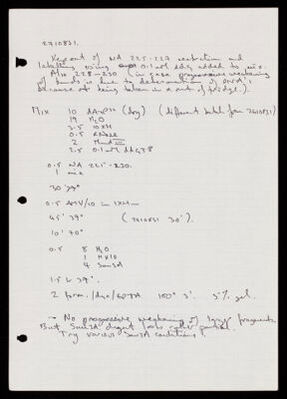 2710831.
Repeat of NA 225-227 restriction and
labelling using 0.1 mM ddG added to mix.
Also 228-230 (in case progressive weakening
of bands is due to deterioration of DNA
because of being taken in & out of fridge).
Mix 10 (dry) (different batch from 2610831)
19 H2O
2.5 10xH
0.5 RNase
2
2.5 0.1 mM ddG
0.5 NA 225-230.
1 mix
30' 37°
0.5 AMV/10 in
45' 37° (2610831 30').
10' 70°
0.5 8 H2O
1 Mx10
4 Sau3A
1.5 h 37°.
2 form./dye/EDTA 100° 3'. 5% gel.
→ No progressive weakening of larger fragments
But Sau3A digest looks rather partial.
Try various Sau3A conditions.